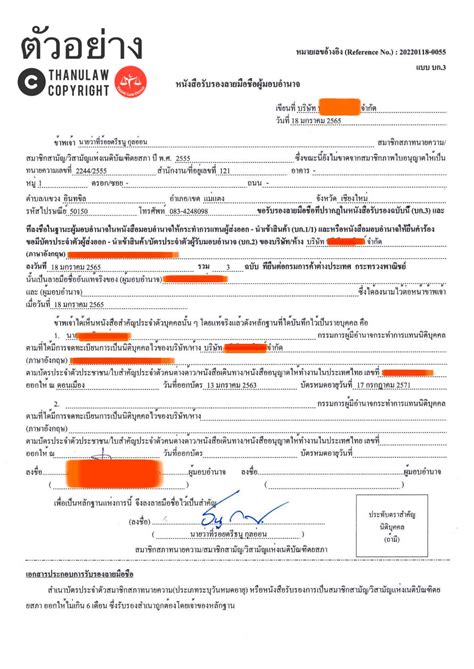 ตัวอย่าง
C THANULAW COPYRIGHT
หมายเลขอ้างอิง (Reference No.) : 20220118-0055
แบบ บก.3
หนังสือรับรองลายมือชื่อผู้มอบอำนาจ
เขียนที่ บริษัท จำกัด
วันที่ 18 มกราคม 2565
ข้าพเจ้า นายว่าที่ร้อยตรีธนู กุลอ่อน สมาชิกสภาทนายความ/
สมาชิกสามัญ/วิสามัญแห่งเนติบัณฑิตยสภา ปี พ.ศ. 2555 ซึ่งขณะนี้ยังไม่ขาดจากสมาชิกภาพใบอนุญาตให้เป็น
ทนายความเลขที่ 2244/2555 สำนักงาน/ที่อยู่เลขที่ 121 อาคาร -
หมู่ 1 ตรอก/ซอย - ถนน -
ตำบล/แขวง อินทขิล อำเภอ/เขต แม่แตง จังหวัด เชียงใหม่
รหัสไปรษณีย์ 50150 โทรศัพท์ 083-4248098 ขอรับรองลายมือชื่อที่ปรากฏในหนังสือรับรองฉบับนี้ (บก.3) และ
ที่ลงชื่อในฐานะผู้มอบอำนาจในหนังสือมอบอำนาจให้กระทำการแทนผู้ส่งออก - นำเข้าสินค้า (บก.1/1) และหรือหนังสือมอบอำนาจให้ยื่นคำร้อง
ขอมีบัตรประจำตัวผู้ส่งออก - นำเข้าสินค้า/บัตรประจำตัวผู้รับมอบอำนาจ (บก.2) ของบริษัท/ห้าง บริษัท จำกัด
(ภาษาอังกฤษ)
ลงวันที่ 18 มกราคม 2565 รวม 3 ฉบับ ที่ยื่นต่อกรมการค้าต่างประเทศ กระทรวงพาณิชย์
นั้นเป็นลายมือชื่ออันแท้จริงของ (ผู้มอบอำนาจ)
และ (ผู้มอบอำนาจ) ซึ่งได้ลงนามไว้ต่อหน้าข้าพเจ้า
เมื่อวันที่ 18 มกราคม 2565
ข้าพเจ้าได้เห็นหนังสือสำคัญประจำตัวบุคคลนั้น ๆ โดยแท้จริงแล้วดังหลักฐานที่ได้บันทึกไว้เป็นรายบุคคล คือ
1. นาย กรรมการผู้มีอำนาจกระทำการแทนนิติบุคคล
ตามที่ได้มีการจดทะเบียนการเป็นนิติบุคคลไว้ของบริษัท/ห้าง บริษัท จำกัด
(ภาษาอังกฤษ)
ตามบัตรประจำตัวประชาชน/ใบสำคัญประจำตัวคนต่างด้าว/หนังสือเดินทาง/หนังสืออนุญาตให้ทำงานในประเทศไทย เลขที่
ออกให้ ณ ดอนเมือง วันที่ออกบัตร 13 มกราคม 2563 บัตรหมดอายุวันที่ 17 กรกฎาคม 2571
2. กรรมการผู้มีอำนาจกระทำการแทนนิติบุคคล
ตามที่ได้มีการจดทะเบียนการเป็นนิติบุคคลไว้ของบริษัท/ห้าง
(ภาษาอังกฤษ)
ตามบัตรประจำตัวประชาชน/ใบสำคัญประจำตัวคนต่างด้าว/หนังสือเดินทาง/หนังสืออนุญาตให้ทำงานในประเทศไทย เลขที่
ออกให้ ณ วันที่ออกบัตร บัตรหมดอายุวันที่
ลงชื่อ ผู้มอบอำนาจ ลงชื่อ ผู้มอบอำนาจ
เพื่อเป็นหลักฐานแห่งการนี้ จึงลงลายมือชื่อไว้เป็นสำคัญ
(ลงชื่อ)
( นายว่าที่ร้อยตรีธนู กุลอ่อน )
สมาชิกสภาทนายความ/สมาชิกสามัญ/วิสามัญแห่งเนติบัณฑิตยสภา
ประทับตราสำคัญ
นิติบุคคล
(ถ้ามี)
เอกสารประกอบการรับรองลายมือชื่อ
สำเนาบัตรประจำตัวสมาชิกสภาทนายความ(ประเภทระบุวันหมดอายุ) หรือหนังสือรับรองการเป็นสมาชิกสามัญ/วิสามัญแห่งเนติบัณฑิตย
สภา ออกให้ไม่เกิน 6 เดือน ซึ่งรับรองสำเนาถูกต้องโดยเจ้าของหลักฐาน